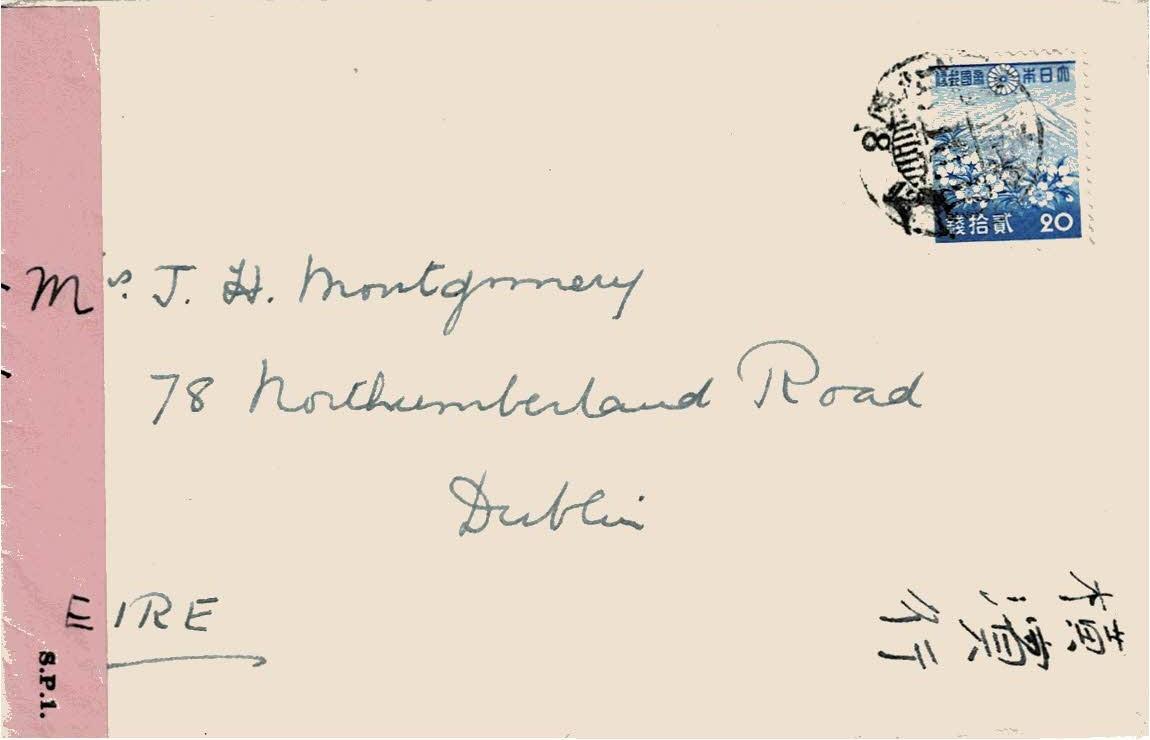 大日本帝國郵便
貳拾錢 20
Mrs. J. H. Montgomery
78 Northumberland Road
Dublin
EIRE
横濱行
S.P.1.